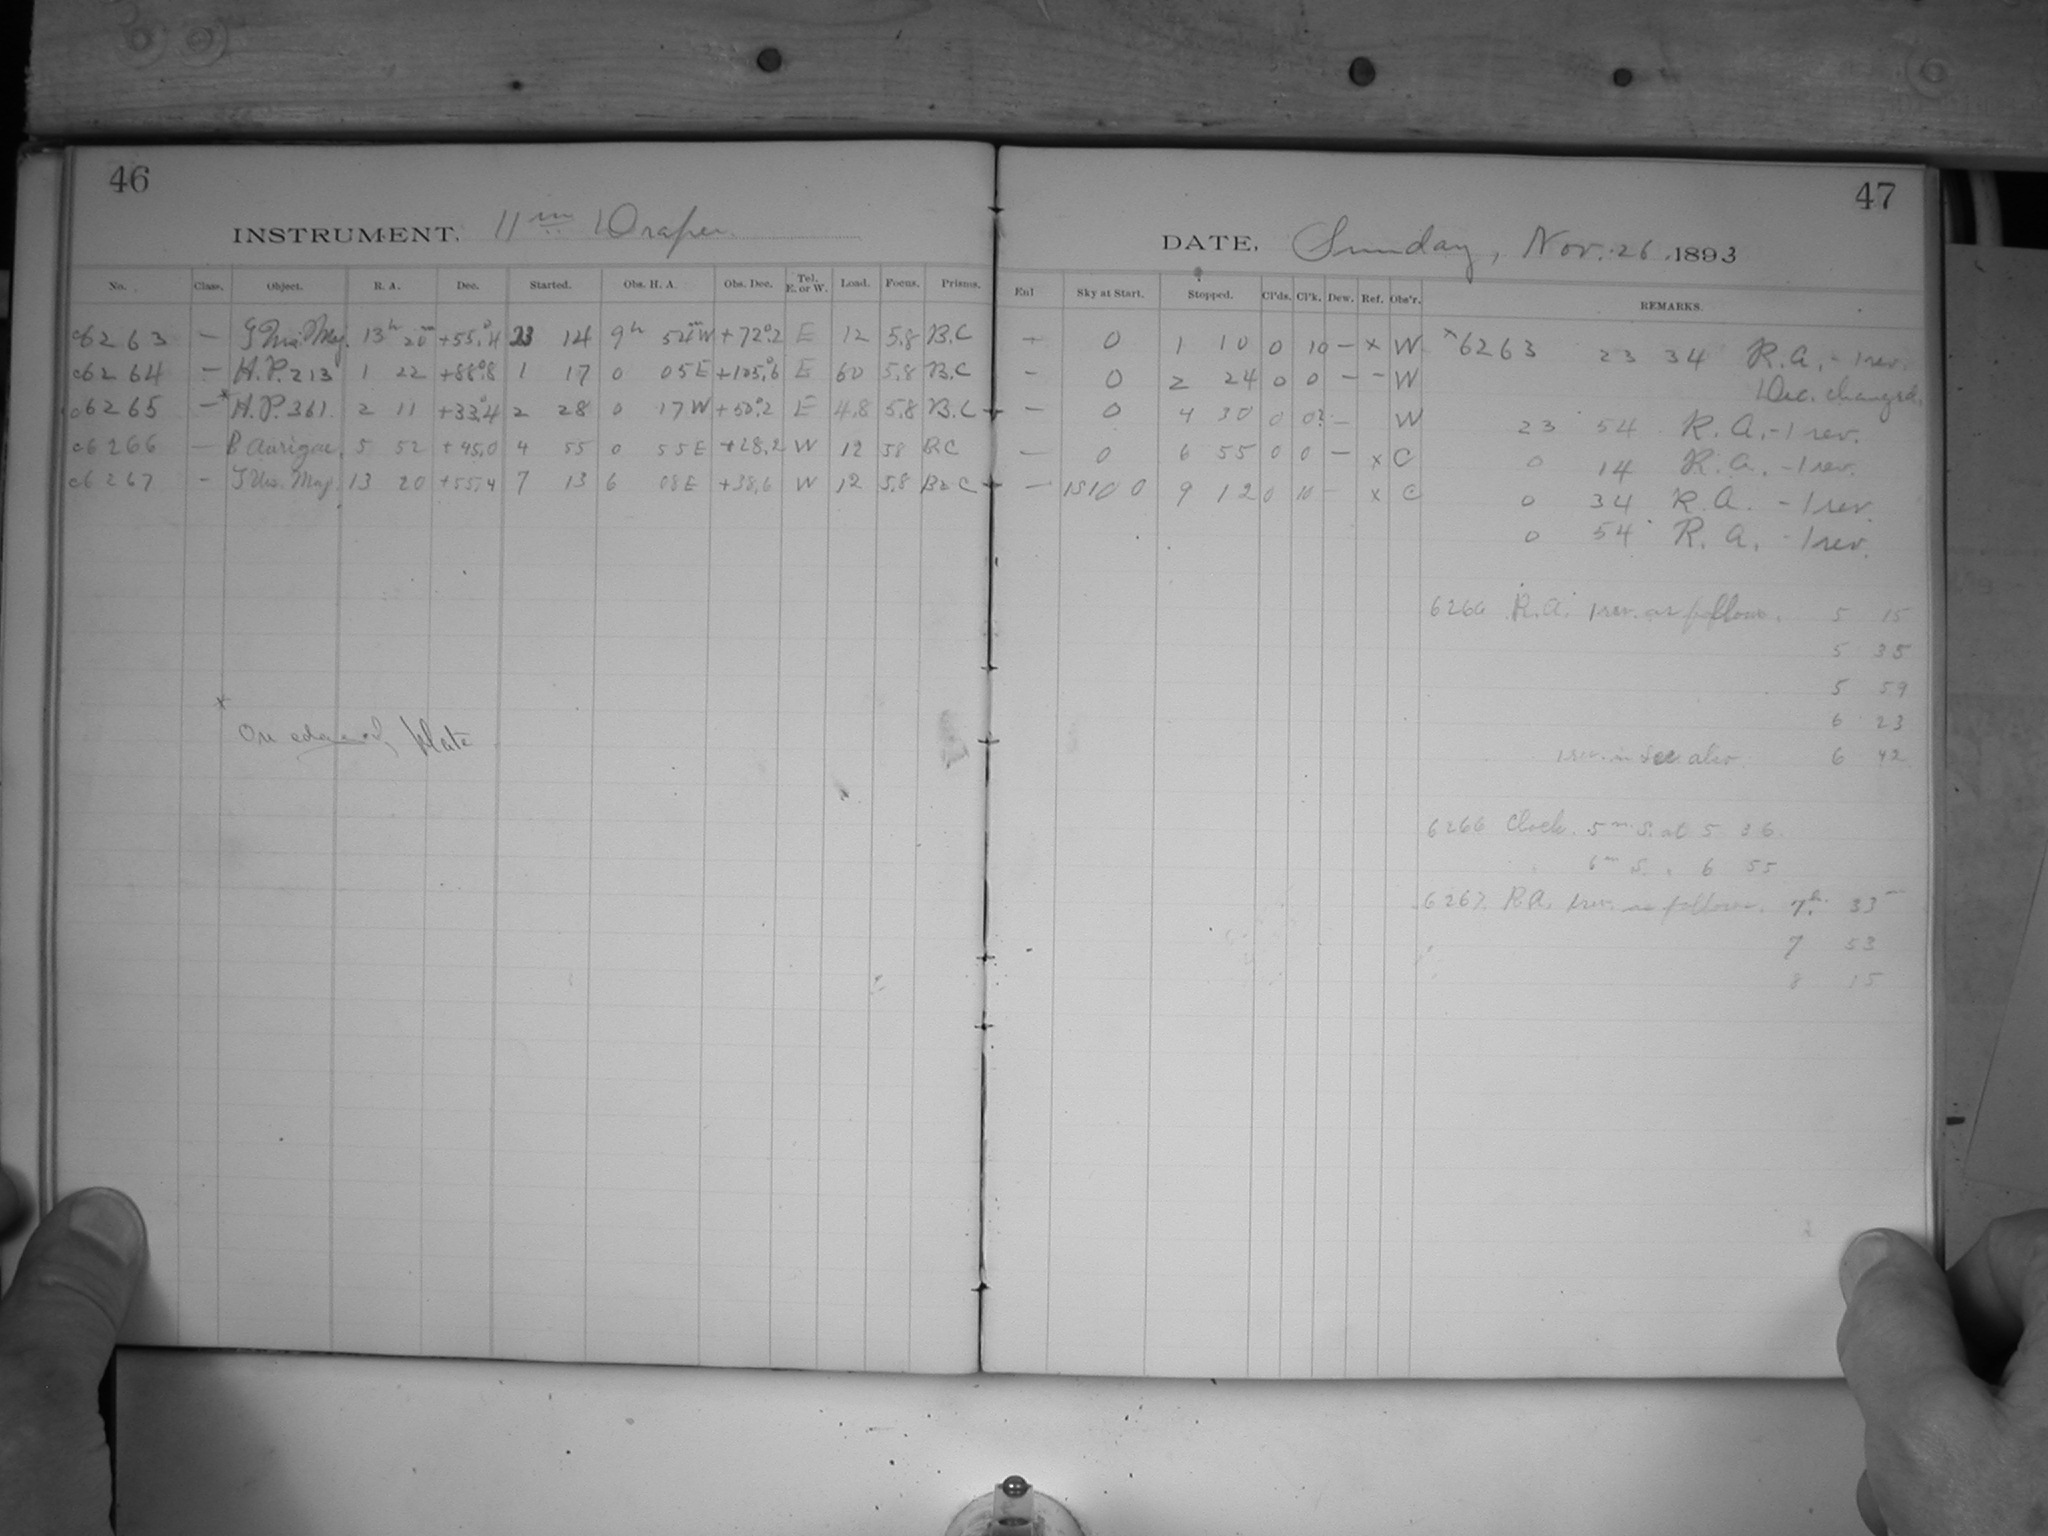 46
INSTRUMENT. 11 in Draper
No. Class. Object. R. A. Dec. Started. Obs. H. A. Obs. Dec. Tel. E. or W. Load. Focus. Prisms.
c6263 — ζ Urs. Maj. 13h 20m +55.°4 23 14 9h 54m W +72.°2 E 12 5.8 B.C
c6264 — H.P. 213 1 22 +88.°8 1 17 0 05 E +105.°6 E 60 5.8 B.C
c6265 — *H.P. 361. 2 11 +33.°4 2 28 0 17 W +50.°2 E 4.8 5.8 B.C
c6266 — β Aurigae. 5 52 +45.0 4 55 0 55 E +28.2 W 12 58 B C
c6267 - ζ Urs. Maj. 13 20 +55.4 7 13 6 08 E +38.6 W 12 5.8 B C
x
On edge of plate
47
DATE. Sunday, Nov. 26, 1893
Enl Sky at Start. Stopped. Cl'ds. Cl'k. Dew. Ref. Obs'r. REMARKS.
— 0 1 10 0 10 — x W
— 0 2 24 0 0 — — W
— 0 4 30 0 0? — W
— 0 6 55 0 0 — x C
— 15100 9 12 0 10 — x C
x6263 23 34 R.A. - 1 rev.
Dec. changed.
23 54 R.A. - 1 rev.
0 14 R.A. - 1 rev.
0 34 R.A. - 1 rev.
0 54 R.A. - 1 rev.
6266 R.A. 1 rev. as follows. 5 15
5 35
5 59
6 23
1 rev. in Dec. also. 6 42
6266 Clock. 5m S. at 5 36.
6m S. " 6 55
6267. R.A. 1 rev. as follows. 7h. 33m
7 53
8 15